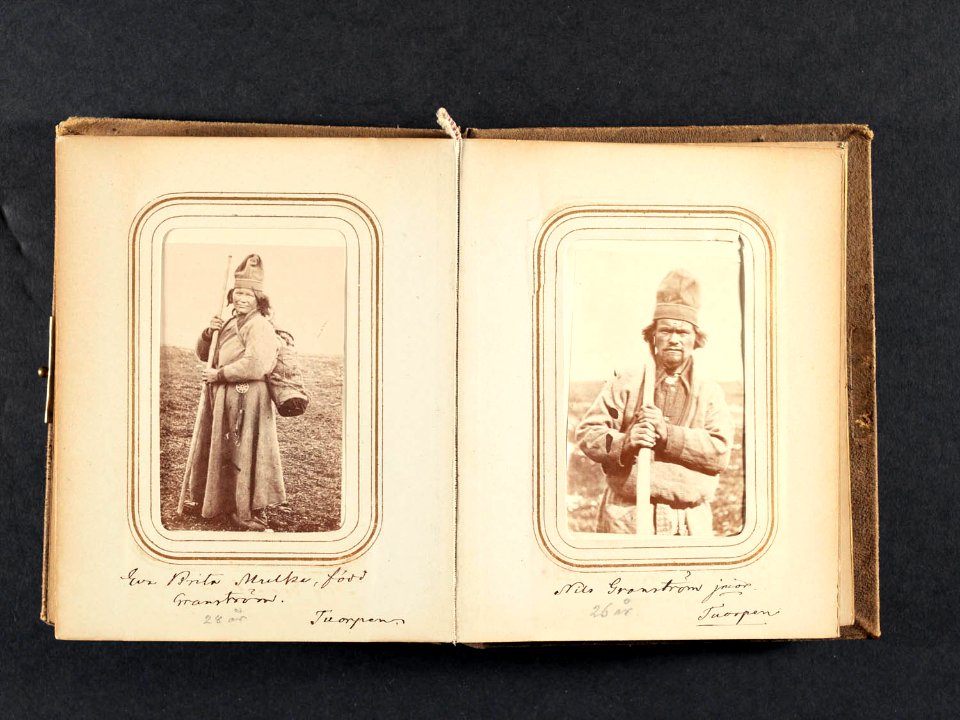 Eva Brita Mulka, född
Granström.
28 år
Tuorpen.
Nils Granström junior.
26 år
Tuorpen